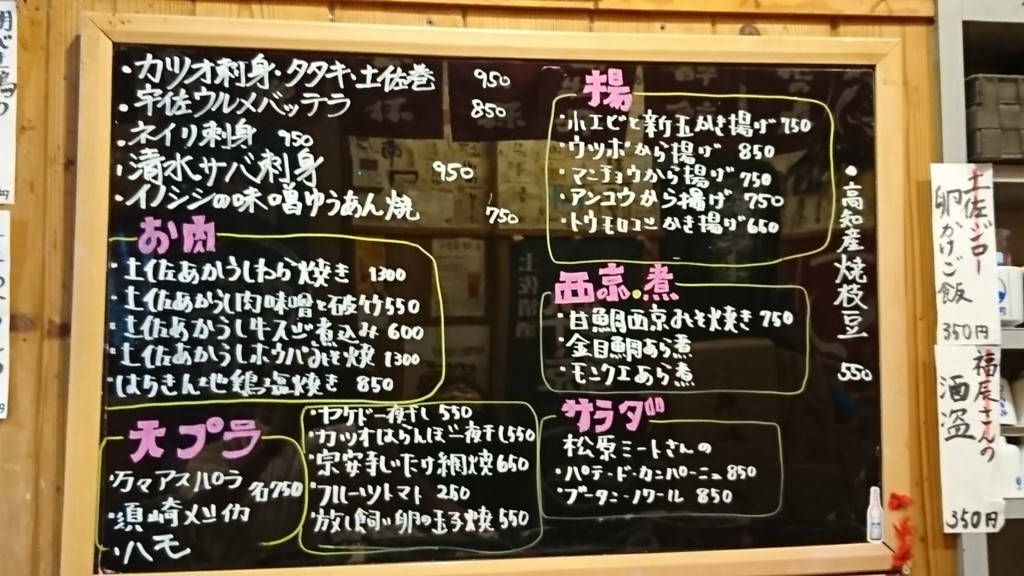 ・カツオ刺身・タタキ・土佐巻 950
・宇佐ウルメバッテラ 850
・ネイリ刺身 950
・清水サバ刺身 950
・イノシシの味噌ゆうあん焼 750
お肉
・土佐あかうしわら焼き 1300
・土佐あかうし肉味噌と破竹 550
・土佐あかうし牛スジ煮込み 600
・土佐あかうしホウバみそ焼 1300
・はちきん地鶏塩焼き 850
天プラ
・アスパラ 各750
・須崎メジイカ
・ハモ
・ヤケド一夜干し 550
・カツオはらんぼ一夜干し 550
・宗安寺しいたけ網焼 650
・フルーツトマト 250
・放し飼い卵の玉子焼 550
揚
・小エビと新玉かき揚げ 750
・ウツボから揚げ 850
・マンボウから揚げ 750
・アンコウから揚げ 750
・トウモロコシかき揚げ 650
西京・煮
・甘鯛西京みそ焼き 750
・金目鯛あら煮
・モンクエあら煮
サラダ
・松原ミートさんの
・パテ・ド・カンパーニュ 850
・ブータン・ノワール 850
・高知産焼枝豆 550
土佐ジロー
卵かけご飯
350円
福辰さんの
酒盗
350円